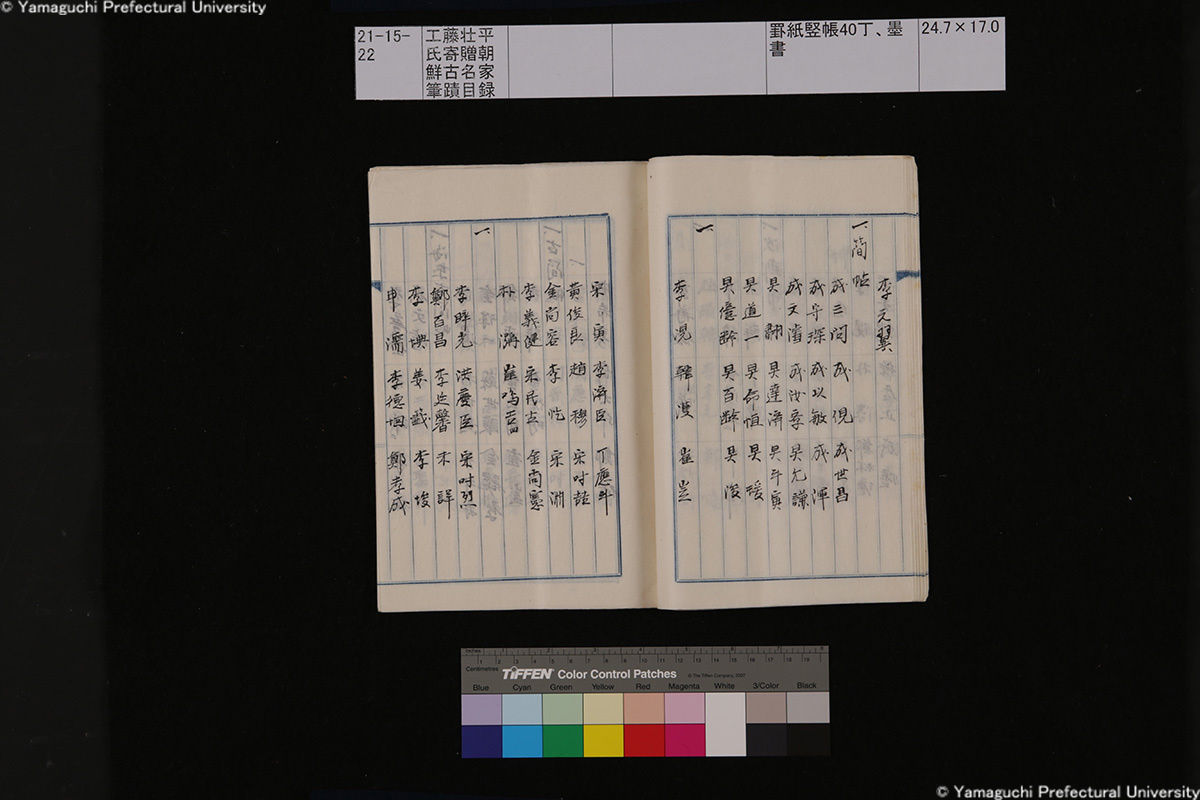 © Yamaguchi Prefectural University
21-15-22
工藤壮平氏寄贈朝鮮古名家筆蹟目録
罫紙竪帳40丁、墨書
24.7×17.0
李元翼
一簡帖
成三問 成 俔 成世昌
成守琛 成以敏 成 渾
成文濬 成汝學 吳允謙
吳 翽 吳達濟 吳斗寅
吳道一 吳命恒 吳 瑗
吳億齡 吳百齡 吳 浚
一
李滉 韓濩 崔岦
宋寅 李濟臣 丁應斗
黄俊良 趙穆 宋時喆
金尚容 李 忔 宋 淵
李義健 宋民古 金尚憲
朴瀰 崔鳴吉
一
李晬光 洪慶臣 宋時烈
鄭百昌 李 馨 未詳
李 姜 李埈
申濡 李德 鄭孝成
Inches
Centimetres
TIFFEN Color Control Patches
© The Tiffen Company, 2007
Blue Cyan Green Yellow Red Magenta White 3/Color Black
© Yamaguchi Prefectural University